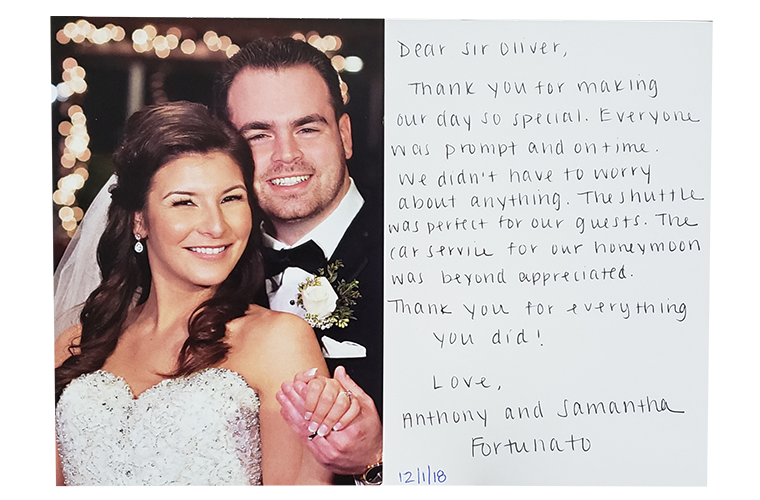 Dear Sir Oliver,
Thank you for making
our day so special. Everyone
was prompt and on time.
We didn't have to worry
about anything. The shuttle
was perfect for our guests. The
car service for our honeymoon
was beyond appreciated.
Thank you for everything
you did!
Love,
Anthony and Samantha
Fortunato
12/1/18